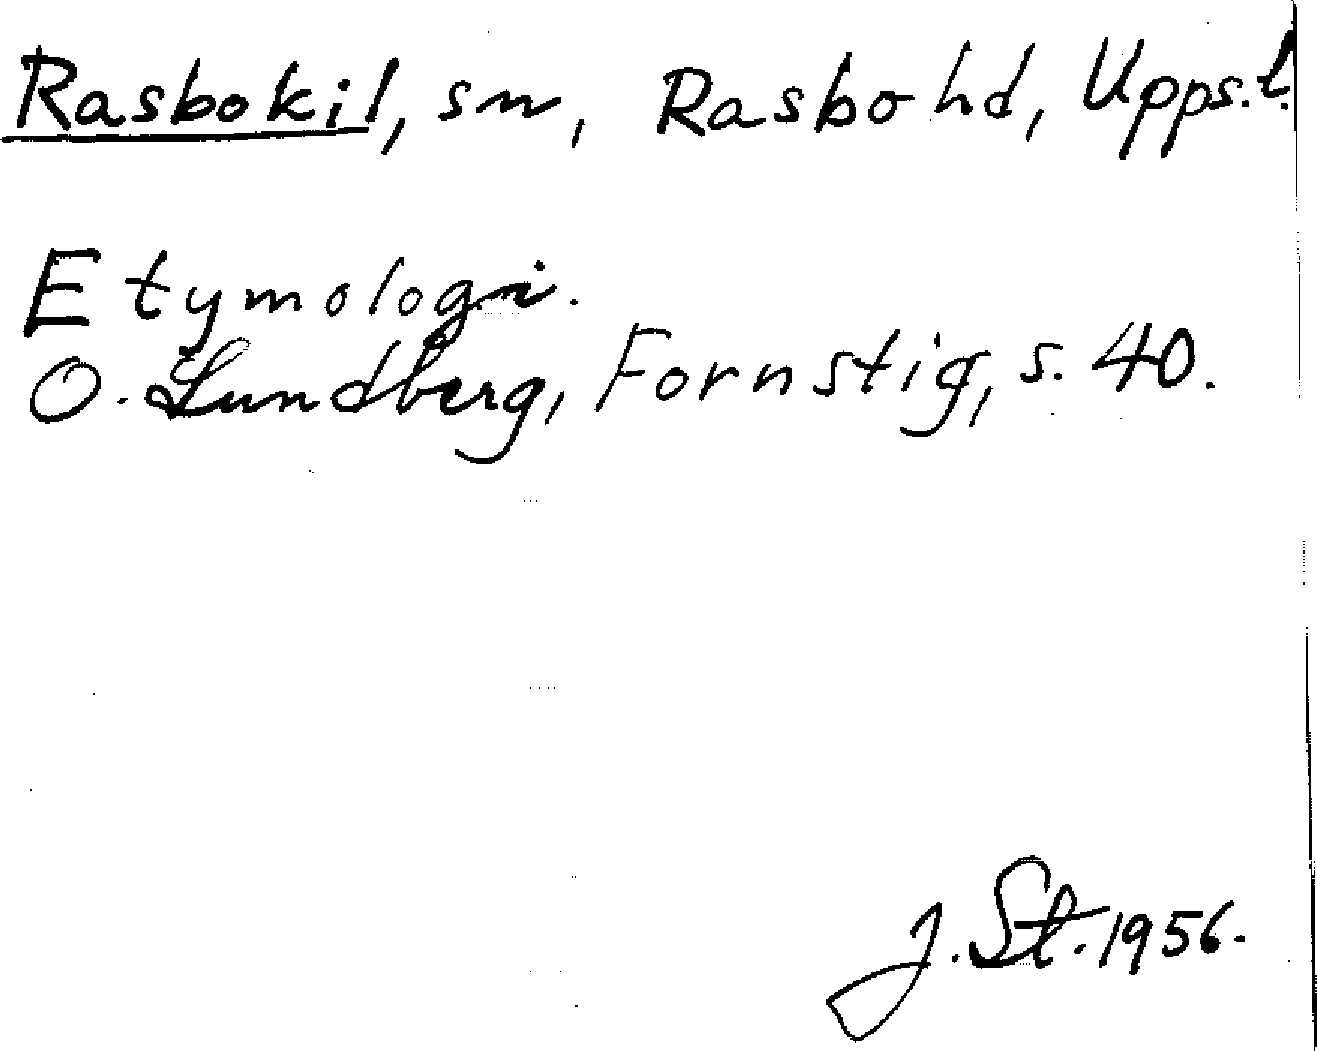 Rasbokil, sn, Rasbo hd, Upps. l.
Etymologi.
O. Lundberg, Fornstig, s. 40.
J. St. 1956.